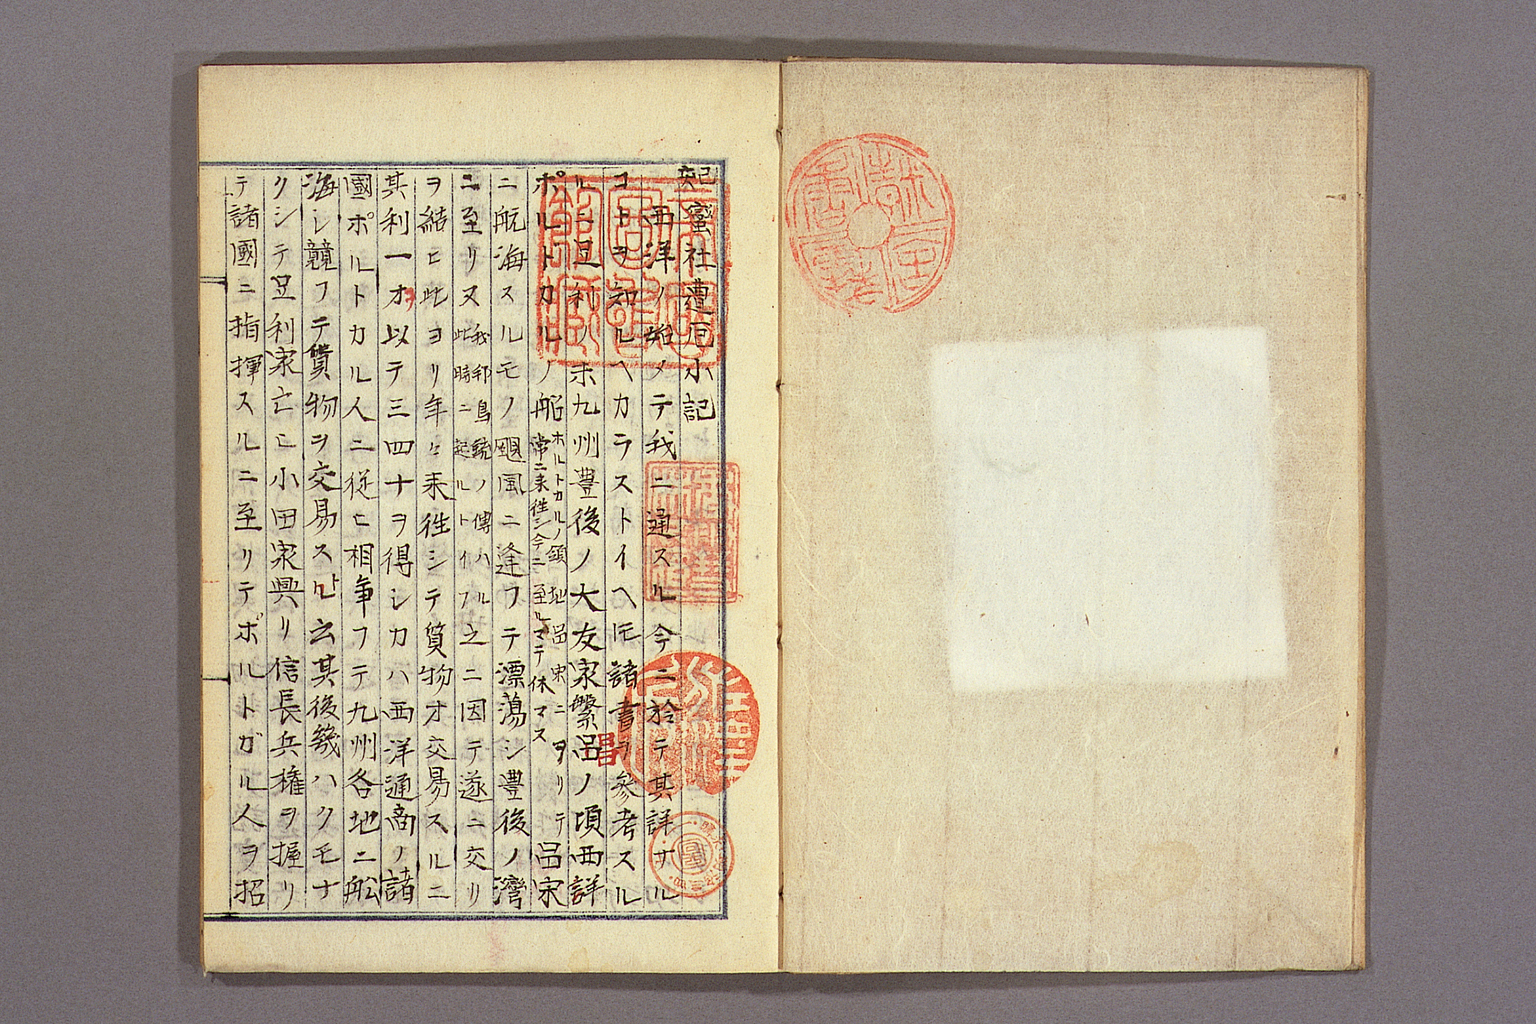 蛮社遭厄小記
西洋ノ始メテ我ニ通スル今ニ於テ其詳ナル
コトヲ知ルヘカラストイヘ𪜈諸書ヲ参考スル
ニ足利ノ末九州豊後ノ大友家繁昌ノ頃西洋
ポルトカルノ船ホルトカルノ領地呂宋ニヲリテ
常ニ来往シ今ニ至ルマテ休マス呂宋
ニ航海スルモノ颶風ニ逢フテ漂蕩シ豊後ノ湾
ニ至リヌ我邦鳥銃ノ傳ハル
此時ニ起ルトイフ之ニ因テ遂ニ交リ
ヲ結ヒ此ヨリ年々来往シテ貨物ヲ交易スルニ
其利一ヲ以テ三四十ヲ得シカハ西洋通商ノ諸
國ポルトカル人ニ従ヒ相争フテ九州各地ニ舩
海シ競フテ貨物ヲ交易スト云其後幾ハクモナ
クシテ足利家亡ヒ小田家興リ信長兵権ヲ握リ
テ諸國ニ指揮スルニ至リテポルトガル人ヲ招